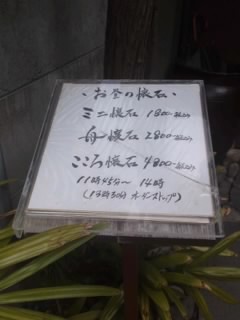 ・お昼の懐石・
ミニ懐石 1800-税込
舟懐石 2800-税込
こころ懐石 4800-税込
11時45分〜14時
(13時30分オーダーストップ)